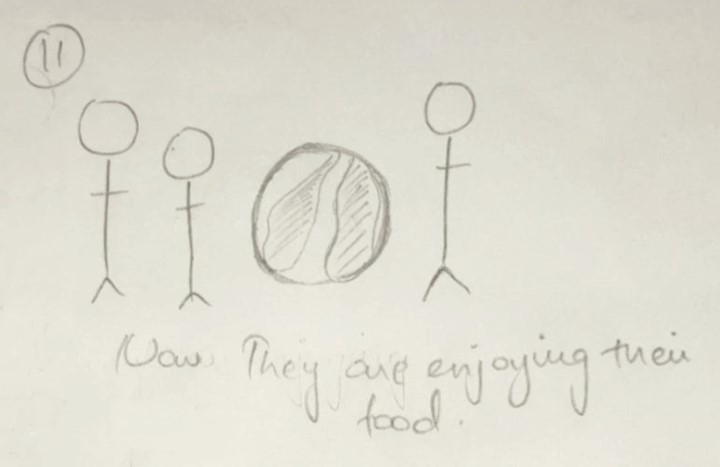 11
Now They are enjoying their
food.